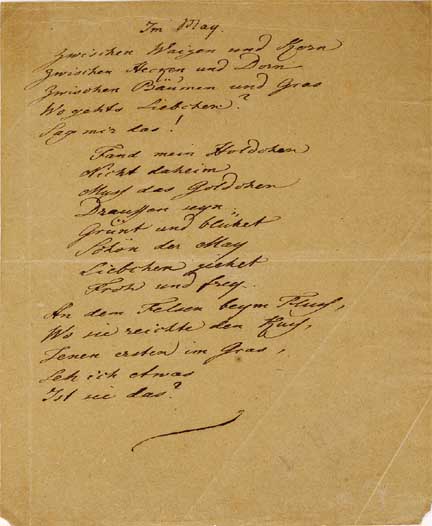 Im May.
Zwischen Waizen und Korn
Zwischen Hecken und Dorn
Zwischen Bäumen und Gras
Wo gehts Liebchen?
Sag mir das!
Fand mein Holdchen
Nicht daheim
Muss das Goldchen
Draussen seyn.
Grünt und blühet
Schön der May
Liebchen ziehet
Froh und frey.
An dem Felsen beym Fluss,
Wo sie reichte den Kuss,
Jenen ersten im Gras,
Seh ich etwas
Ist sie das?